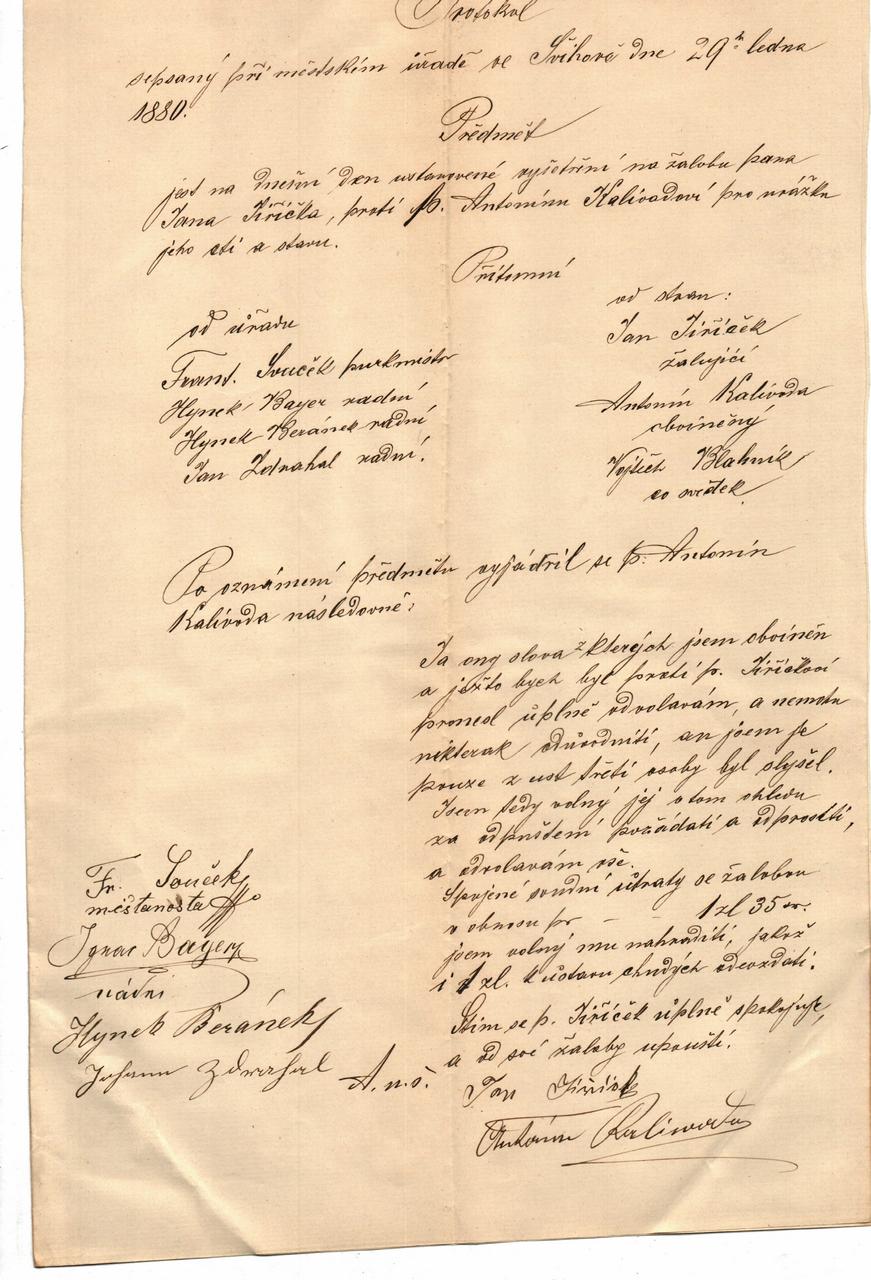 Protokol
sepsaný při městském úřadě ve Švihově dne 29ho ledna
1880.
Předmět
jest na dnešní den ustanovené vyšetření na žalobu pana
Jana Jiříčka, proti p. Antonínu Kalivodovi pro urážku
jeho cti a stavu.
Přítomní
od úřadu
Frant. Souček purkmistr
Hynek Bayer radní
Hynek Beránek radní
Jan Zdrahal radní.
od stran:
Jan Jiříček
žalující
Antonín Kalivoda
obviněný
Vojtěch Blahník
co svědek.
Po oznámení předmětu vyjádřil se p. Antonín
Kalivoda následovně:
Ja ony slova z kterých jsem obviněn
a ježto bych byl proti p. Jiříčkovi
pronesl úplně odvolavám, a nemohu
nikterak odůvodniti, an jsem je
pouze z ust třetí osoby byl slyšel.
Jsem tedy volný jej v tom ohledu
za odpuštění požádati a odprositi,
a odvolavám vše.
Spojené soudní útraty se žalobou
v obnosu pr - - 1 zl 35 kr.
jsem volný mu nahraditi, jakož
i 1 zl. k ústavu chudých odevzdati.
Stim se p. Jiříček úplně spokojuje,
a od své žaloby upouští.
Fr. Souček
městanosta
Ignac Bayer
rádni
Hynek Beránek
Johann Zdrahal
A. u. s.
Jan Jiříček
Antonín Kaliwoda